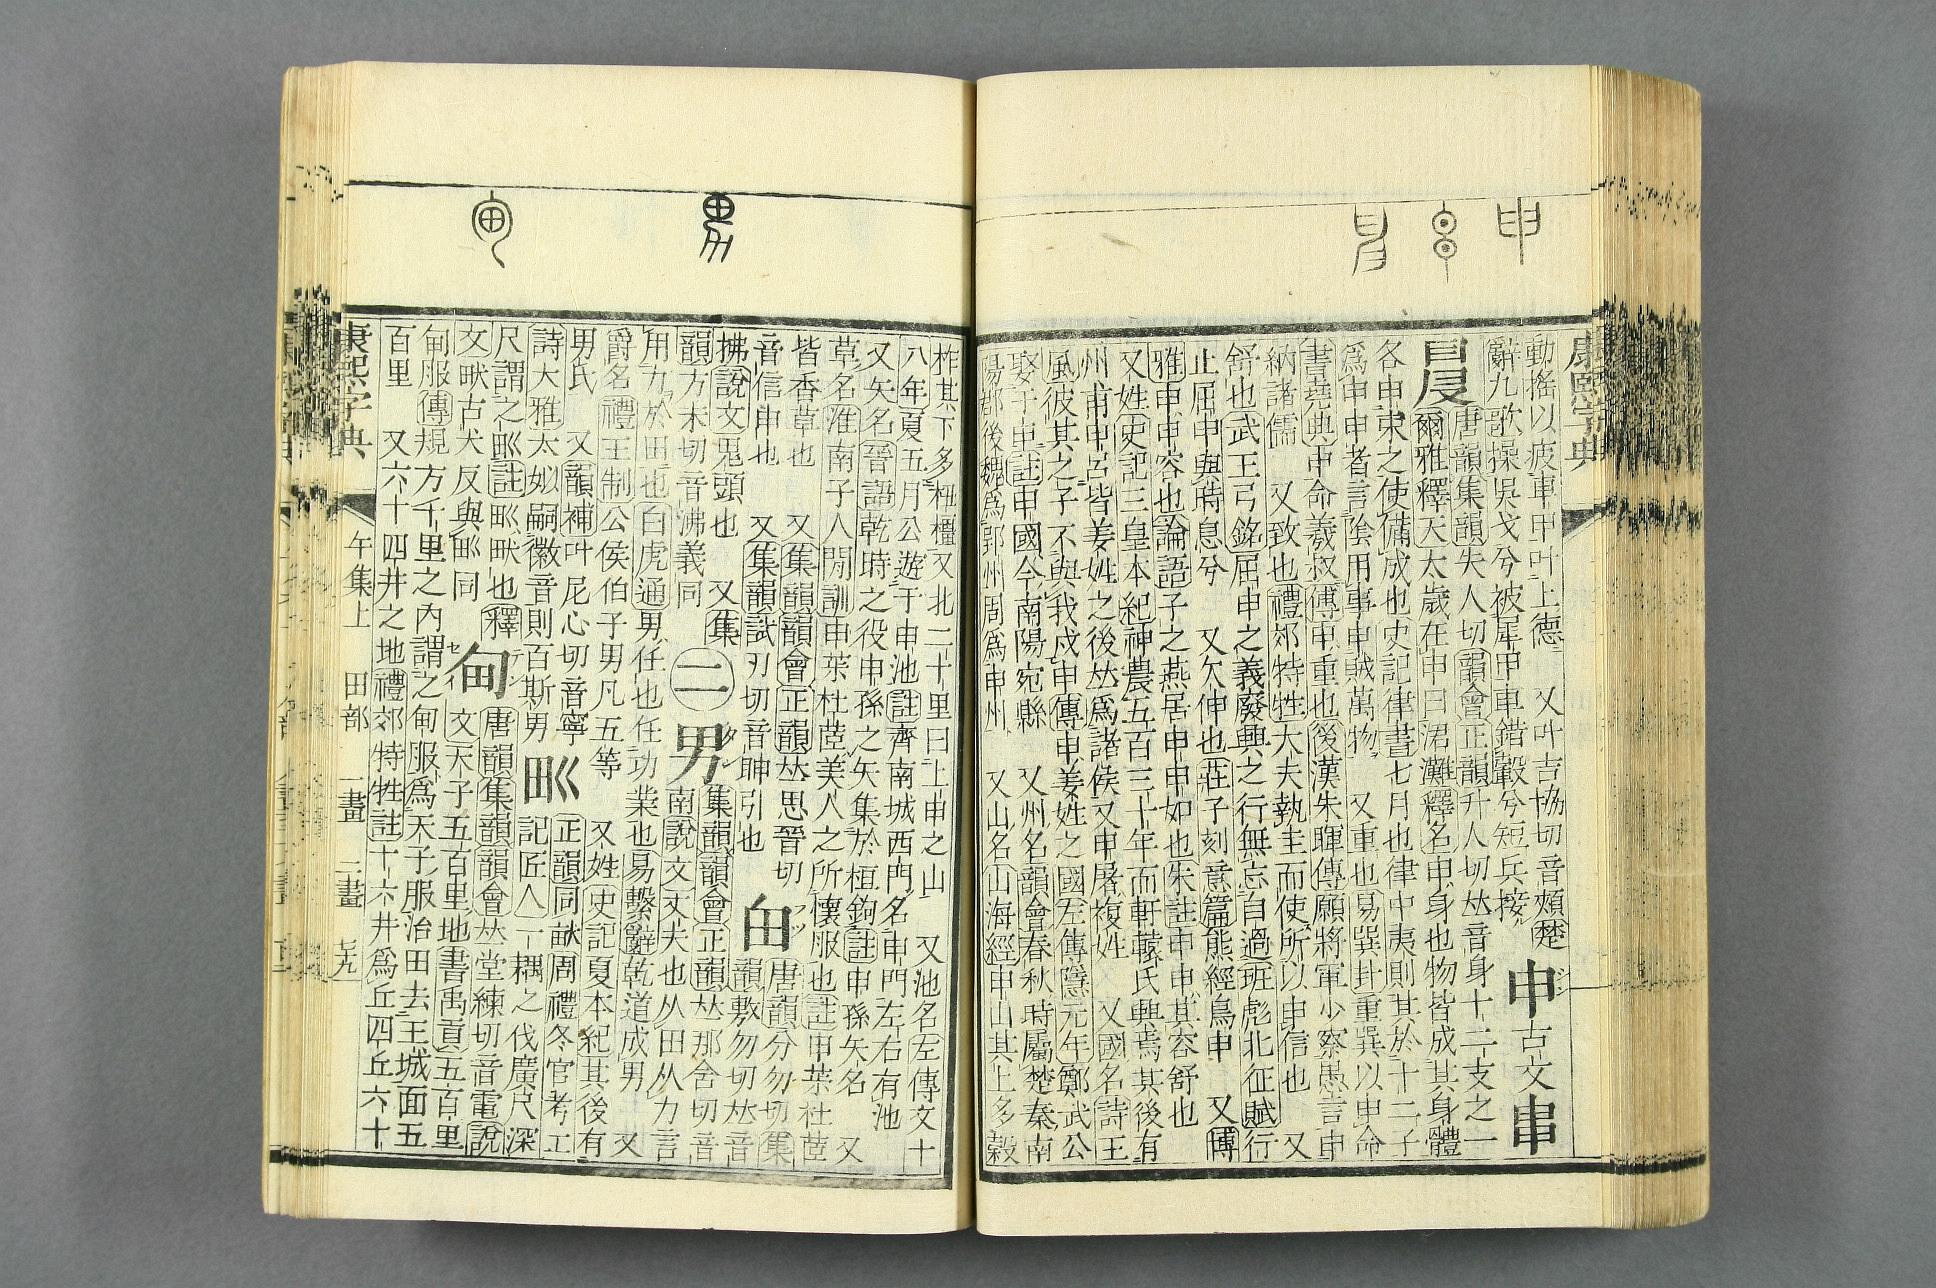 康熙字典
動搖以疲車甲叶上德　又叶吉協切音頰楚
辭九歌操吳戈兮被犀甲車錯轂兮短兵接
申古文串
唐韻集韻失人切韻會正韻升人切𠀤音身十二支之一
爾雅釋天太歲在申曰涒灘釋名申身也物皆成其身體
各申束之使備成也史記律書七月也律中夷則其於十二子
爲申申者言陰用事申賊萬物　又重也易巽卦重巽以申命
書堯典申命羲叔傳申重也後漢朱暉傳願將軍少察愚言申
納諸儒　又致也禮郊特牲大夫執圭而使所以申信也　又
舒也武王弓銘屈申之義廢興之行無忘自過班彪北征賦行
止屈申與時息兮　又欠伸也莊子刻意篇熊經鳥申　又博
雅申申容也論語子之燕居申申如也朱註申申其容舒也
又姓史記三皇本紀神農五百三十年而軒轅氏興焉其後有
州甫申呂皆姜姓之後𠀤爲諸侯又申屠複姓　又國名詩王
風彼其之子不與我戍申傳申姜姓之國左傳隱元年鄭武公
娶于申註申國今南陽宛縣　又州名韻會春秋時屬楚秦南
陽郡後魏爲郢州周爲申州　又山名山海經申山其上多榖
柞其下多杻橿又北二十里曰上申之山　又池名左傳文十
八年夏五月公遊于申池註齊南城西門名申門左右有池
又矢名晉語乾時之役申孫之矢集於桓鉤註申孫矢名　又
草名淮南子人閒訓申茮杜茝美人之所懷服也註申茮杜茝
皆香草也　又集韻韻會正韻𠀤思晉切
音信申也　又集韻試刃切音眒引也
甶
唐韻分勿切集
韻敷勿切𠀤音
拂說文鬼頭也　又集
韻方未切音沸義同
二
男
集韻韻會正韻𠀤那含切音
南說文丈夫也从田从力言
用力於田也白虎通男任也任功業也易繫辭乾道成男　又
爵名禮王制公侯伯子男凡五等　又姓史記夏本紀其後有
男氏　又韻補叶尼心切音寧
詩大雅太姒嗣徽音則百斯男
甽
正韻同畎周禮冬官考工
記匠人一耦之伐廣尺深
尺謂之甽註甽畎也釋
文畎古犬反與甽同
甸
唐韻集韻韻會𠀤堂練切音電說
文天子五百里地書禹貢五百里
甸服傳規方千里之內謂之甸服爲天子服治田去王城面五
百里　又六十四井之地禮郊特牲註十六井爲丘四丘六十
康熙字典　午集上　田部　一畫　二畫　七九